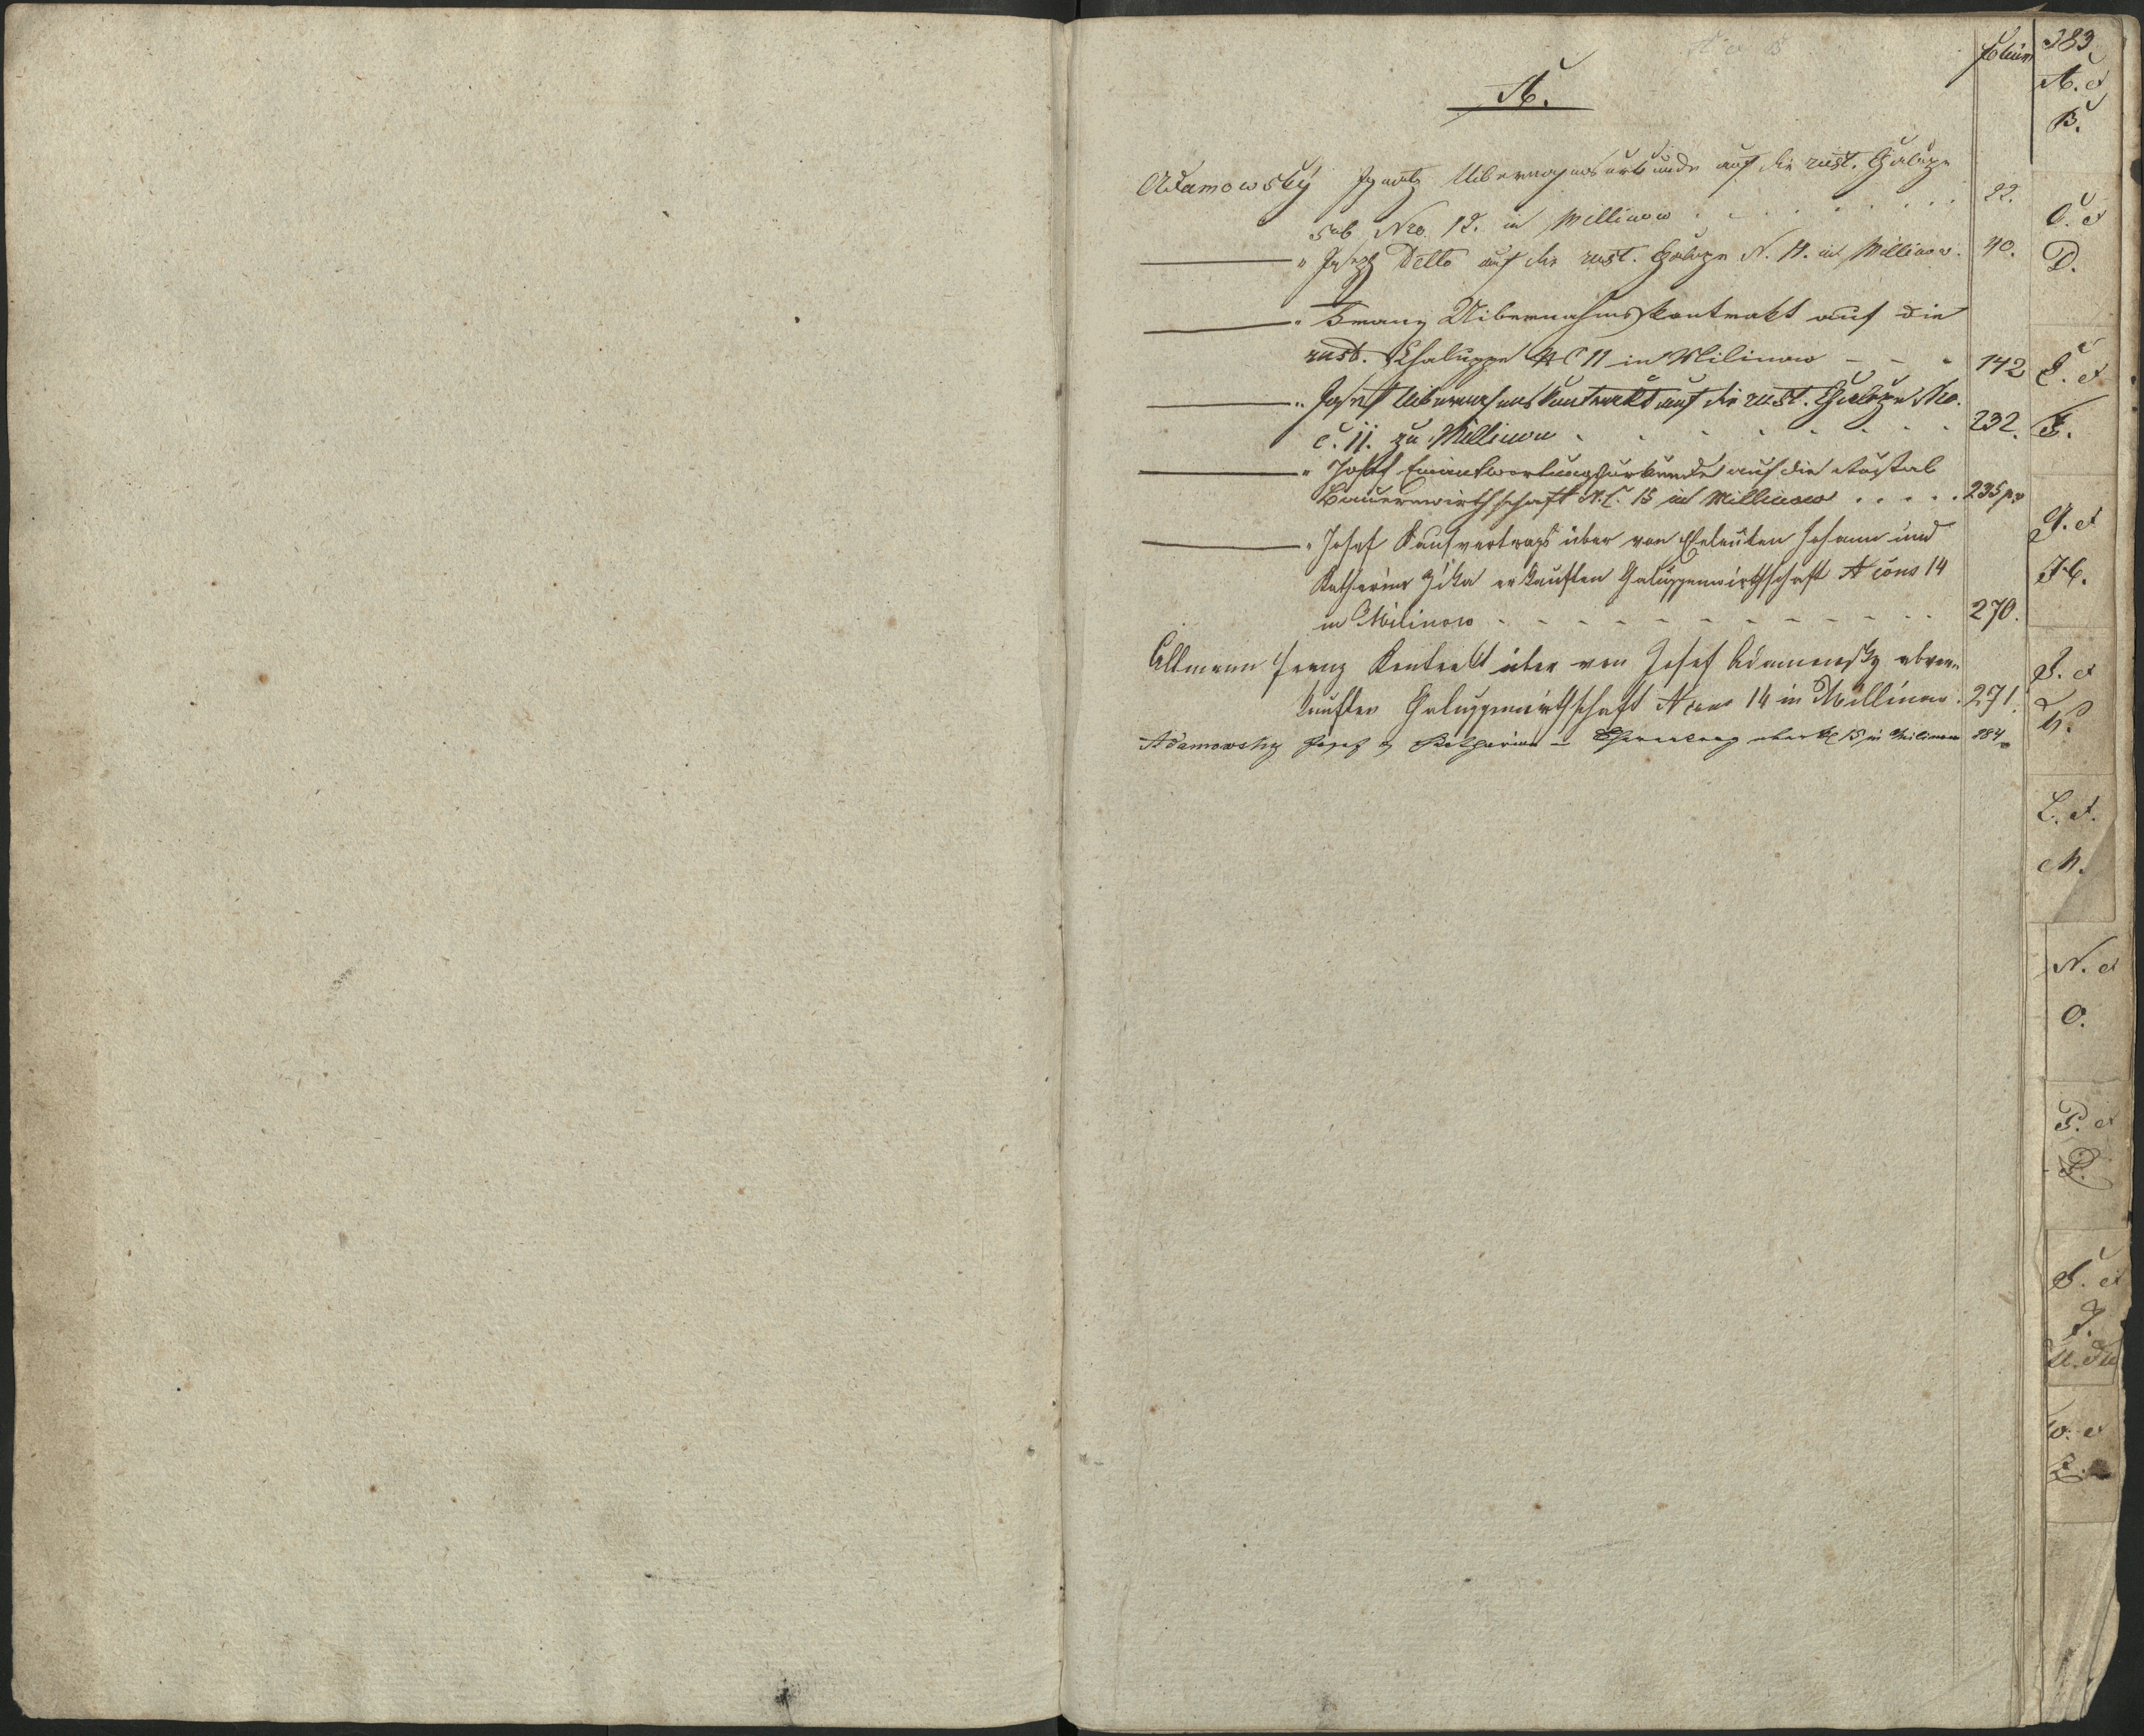 Folium
383
A.
Adamowský Ignatz Übernahmsurkunde auf die rust. Chaluppe
sub Nro. 12. in Millinow . . . . . . . . 22.
" Joseph Detto auf die rust. Chaluppe N. 11. in Millinow. 40.
" Franz Uibernahmskontrakt auf die
rust. Chaluppe NC 11 in Milinow - - - 142
" Josef Übernahmskontrakt auf die rust. Chaluppe Nro.
c. 11. zu Millinow . . . . . . . . 232.
" Josef Einantwortungsurkunde auf die Rustical
Bauernwirthschaft N.C. 15 in Millinow . . . . . 235
" Josef Kaufvertrags über von Eheleuten Johann und
Katharina erkauften Chaluppenwirthschaft N cons 14
in Milinow - - - - - - - - - - 270.
Altmann Franz Kontrakt über von Josef Adamowsky
kauften Chaluppwirthschaft N cons 14 in Millinow. 271.
Adamowsky Josef & Katharina - 15 in Milinow 284
A. et
B.
C. et
D.
E. et
F.
G. et
H.
J. et
K.
L. et
M.
N. et
O.
P. et
S. et
T.
W. et
Z.